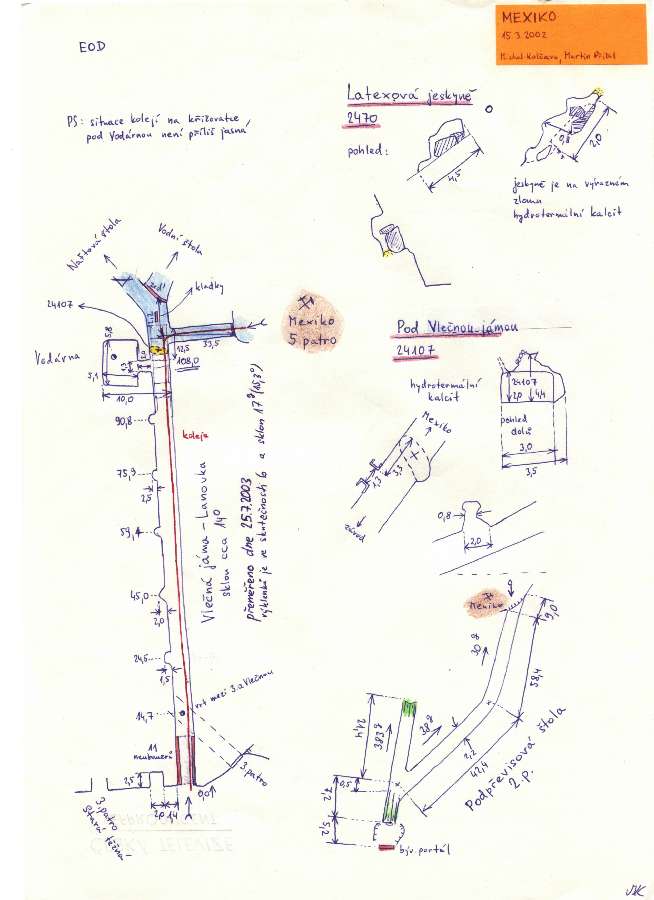 MEXIKO
15.3.2002
EOD
PS: situace kolejí na křižovatce
pod Vodárnou není příliš jasná
Latexová jeskyně
2470
pohled:
4,5
0,8
2,0
jeskyně je na výrazném
zlomu
hydrotermální kalcit
Vodní štola
kladky
24107
Vodárna
5,8
5,1
1,3
10,0
12,5
33,5
108,0
Mexiko
5 patro
Pod Vlečnou jámou
24107
hydrotermální
kalcit
Mexiko
3,3
1,3
závod
24107
2,0
4,4
pohled
dolů
3,0
3,5
0,8
2,0
90,8
koleje
75,9
2,5
59,4
45,0
2,0
24,5
1,5
14,7
Vlečná jáma - Lanovka
sklon cca 14°
přeměřeno dne 25.7.2003
výklenků je ve skutečnosti 6 a sklon 17° (15,3°)
vrt mezi 3. a Vlečnou
11
3. patro
2,5
2,0
1,4
0,0
3. patro
stará těžna
Mexiko
9,0
30%
58,4
21,4
38,3%
38%
2,2
42,4
Podpřevisová štola
2.p.
0,5
7,2
5,2
býv. portál
ČESKÁ TELEVIZE